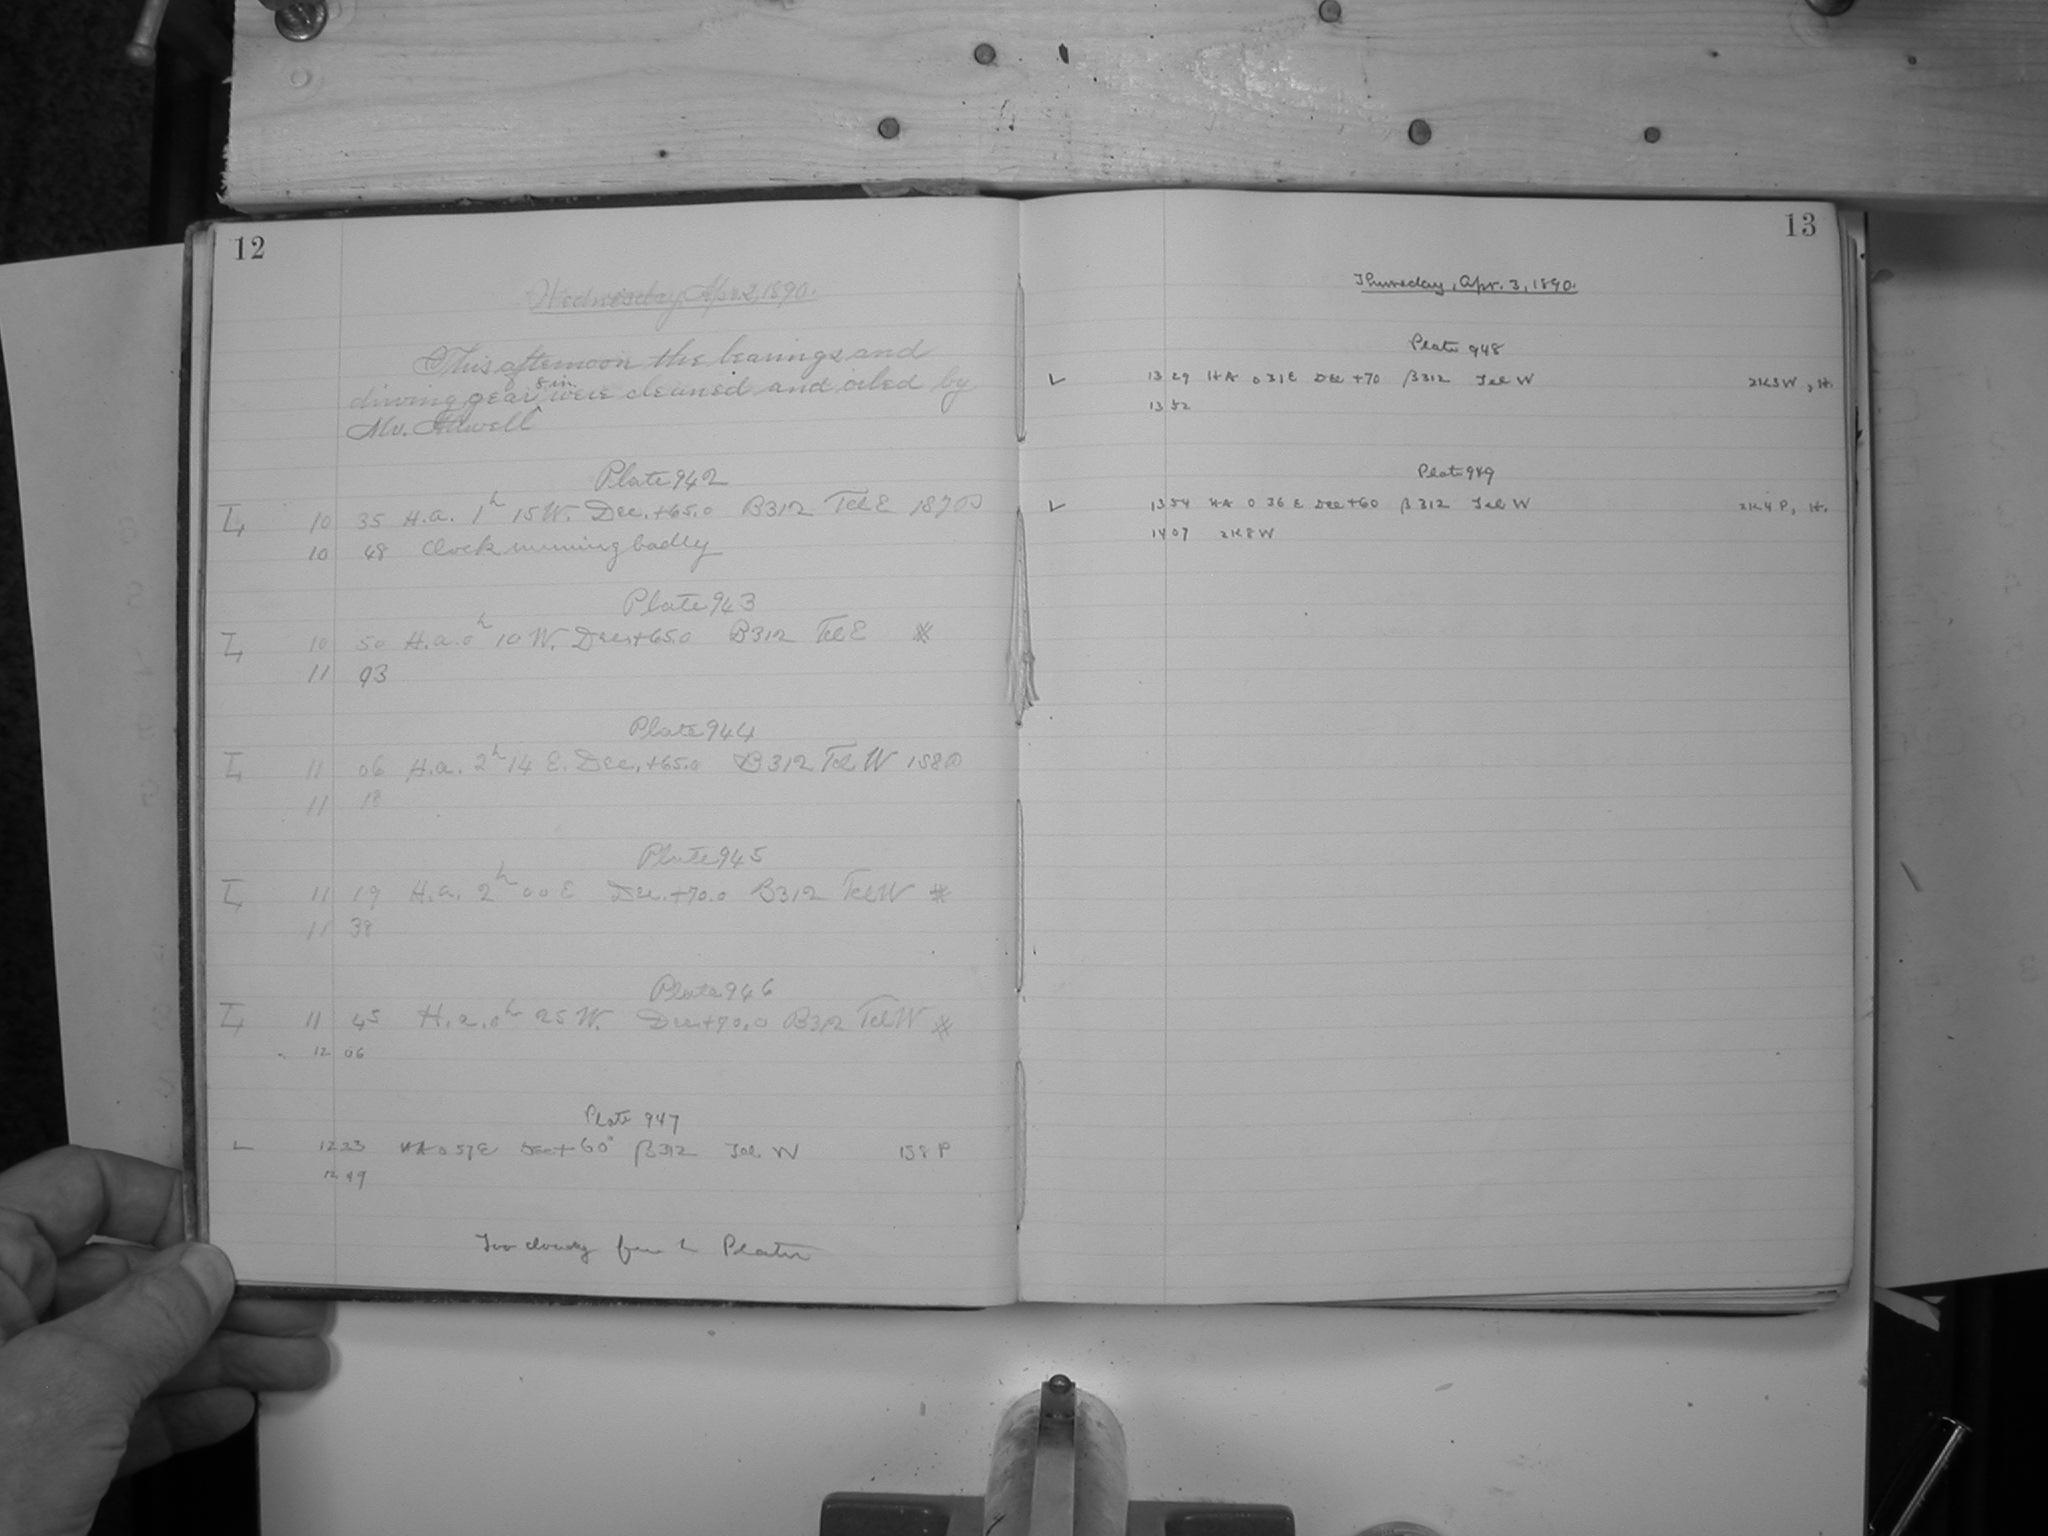 12
Wednesday Apr. 2, 1890.
This afternoon the bearings and
driving gear 8 in were cleaned and oiled by
Mr.
Plate 942
L 10 35 H.a. 1h 15 W. Dec. +65.0 B312 Tel E
10 48 Clock running badly
Plate 943
L 10 50 H.a. 0h 10 W. Dec. +65.0 B312 Tel E
11 03
Plate 944
L 11 06 H.a. 2h 14 E. Dec. +65.0 B312 Tel W
11 18
Plate 945
L 11 19 H.a. 2h 00 E Dec. +70.0 B312 Tel W
11 38
Plate 946
L 11 45 H.a. 0h 25 W. Dec. +70.0 B312 Tel W
12 06
Plate 947
L 12 33 HA 0 57 E Dec +60° β312 Tel W 158 P
12 49
Too cloudy for L Plates
13
Thursday, Apr. 3, 1890.
Plate 948
L 13 29 HA 0 31 E Dec +70 β312 Tel W 2K3W, H.
13 52
Plate 949
L 13 54 HA 0 36 E Dec +60 β312 Tel W 2K4P, H.
14 07 2K8W